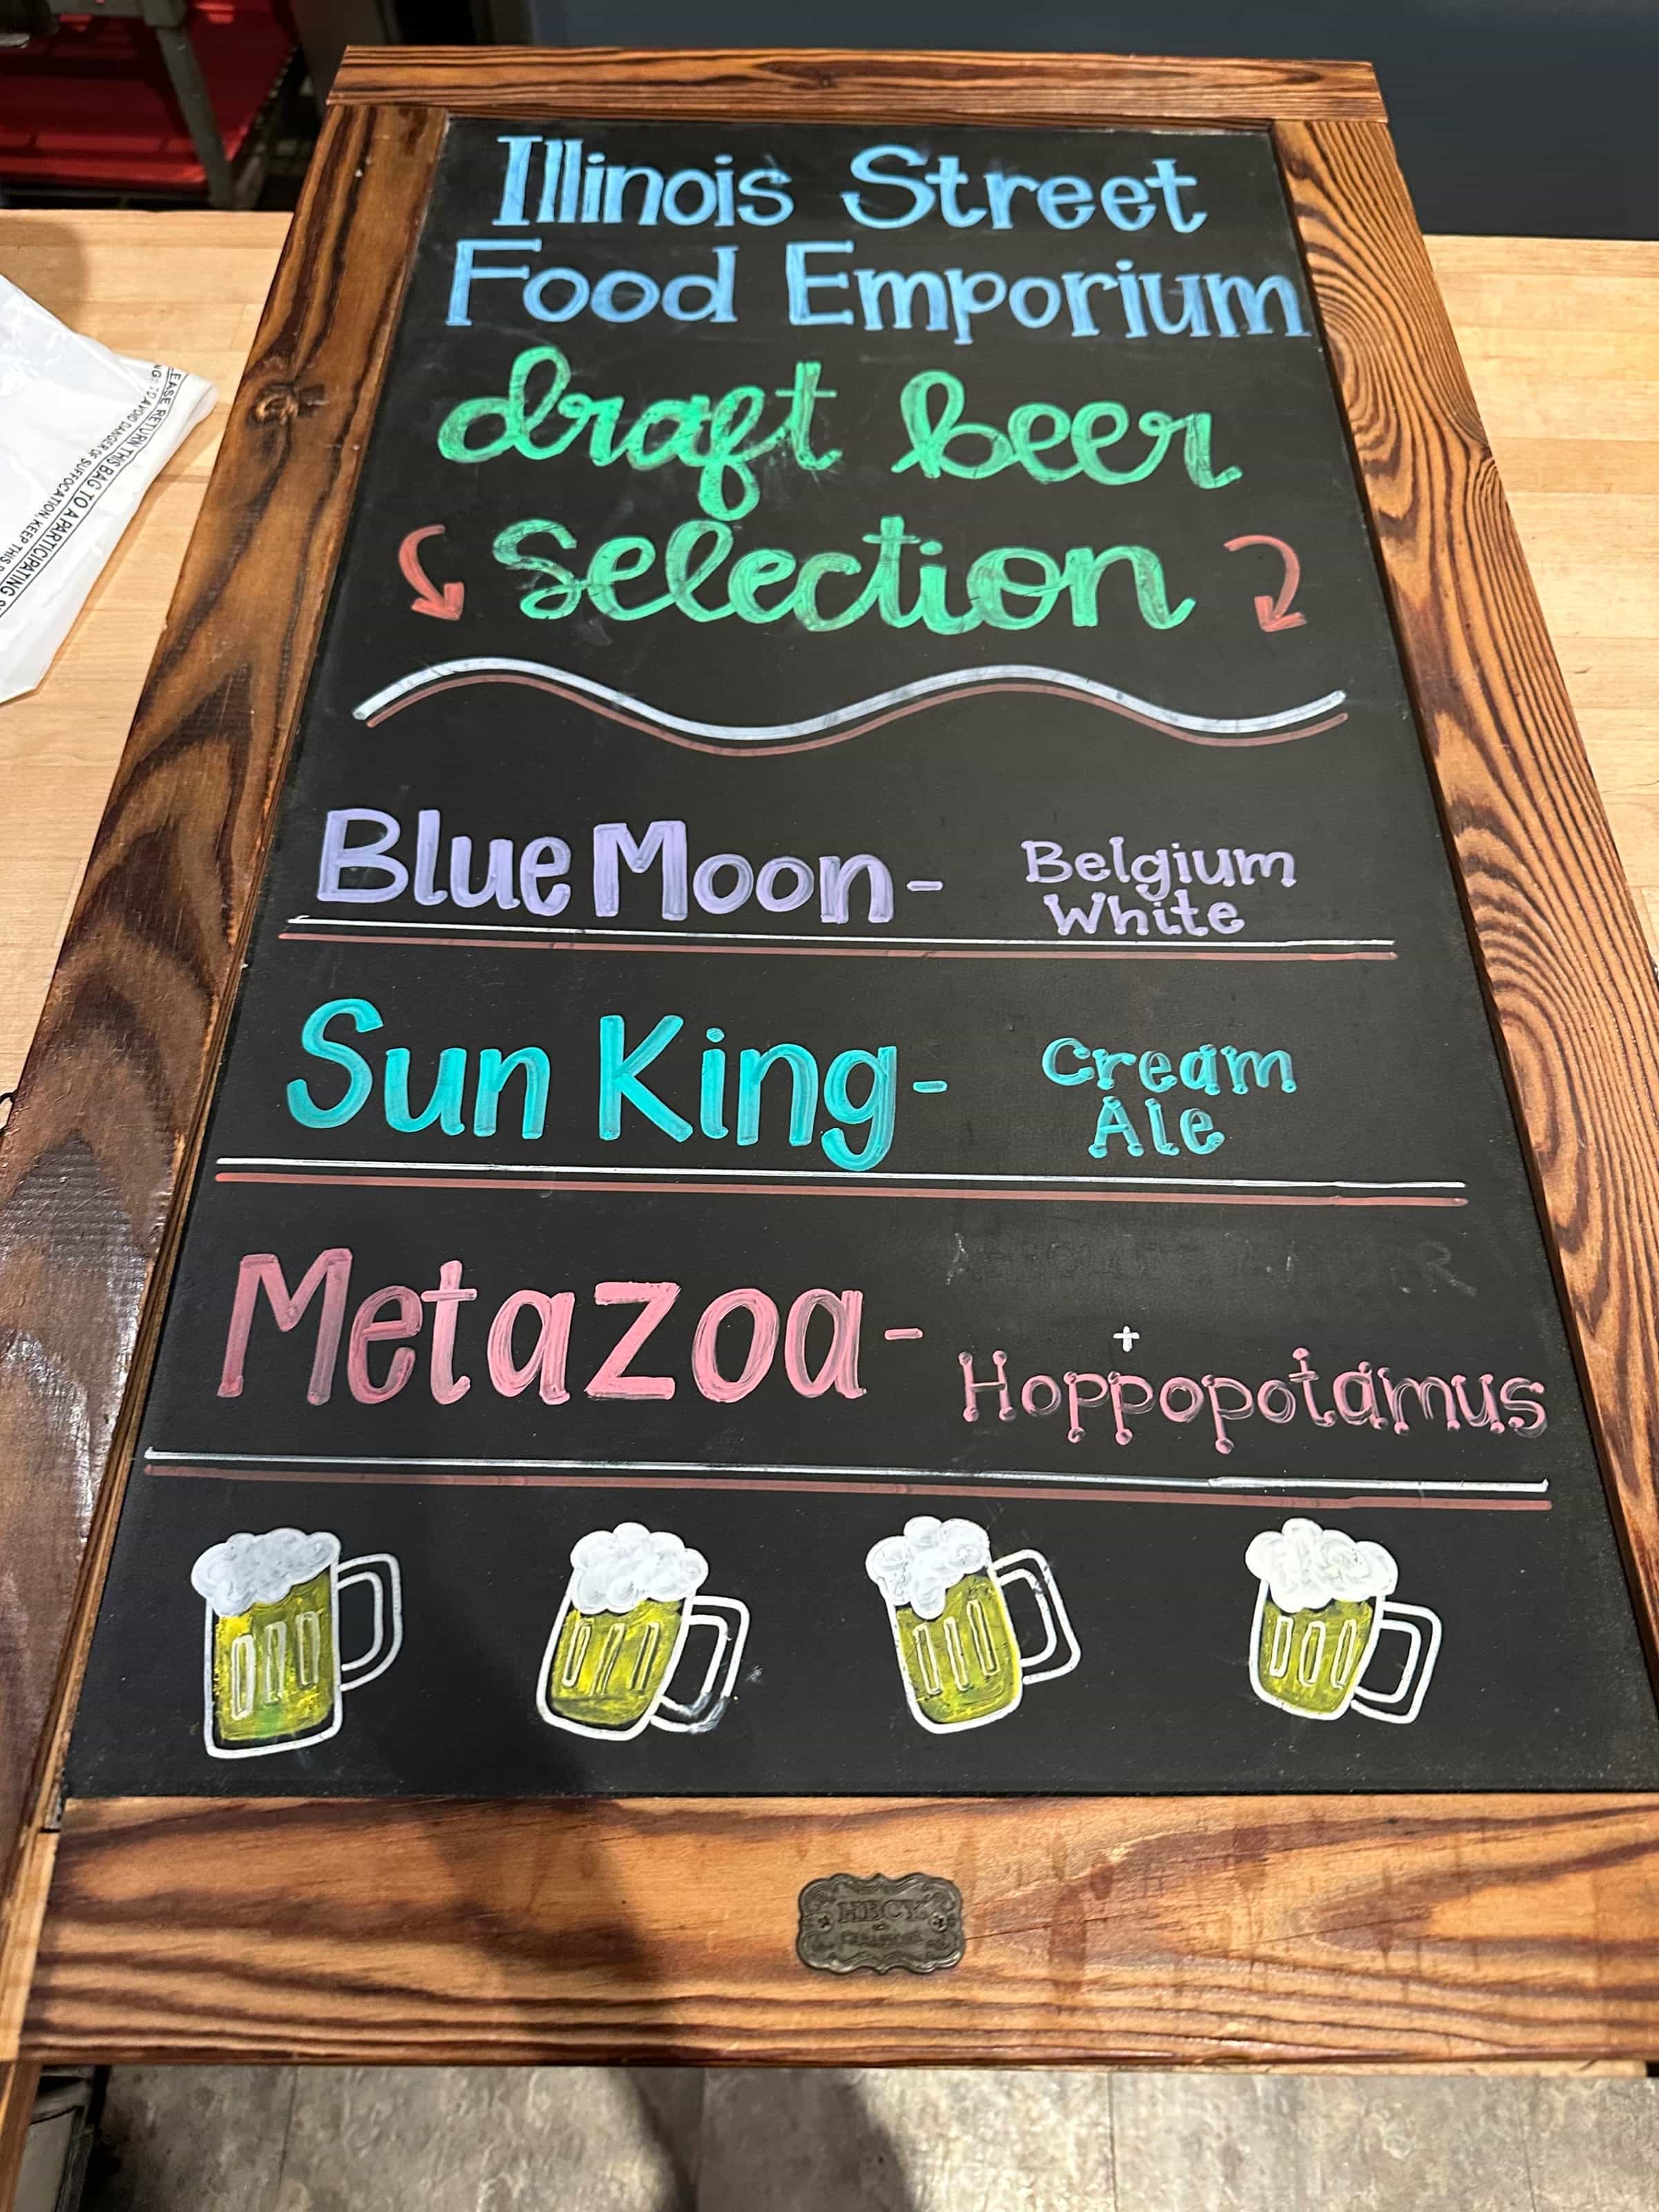 Illinois Street
Food Emporium
draft beer
Selection
Blue Moon - Belgium
White
Sun King - Cream
Ale
Metazoa - +
Hoppopotamus
EASE RETURN THIS BAG TO A PARTICIPATING
TO AVOID DANGER OF SUFFOCATION, KEEP THIS
HBCY